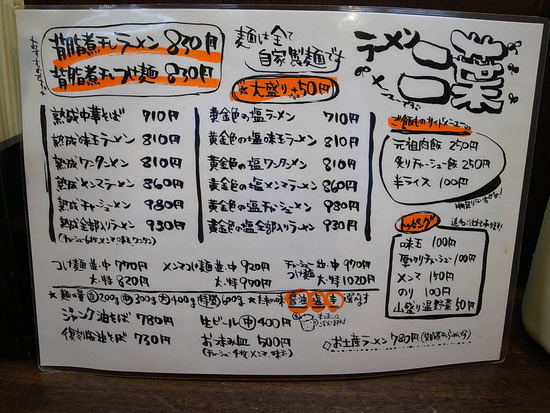 背脂煮干しラーメン 830円
背脂煮干しつけ麺 830円
麺は全て
自家製麺です
★大盛り+50円
ラーメン
熟成中華そば 710円
熟成味玉ラーメン 810円
熟成ワンタンメン 810円
熟成メンマラーメン 860円
熟成チャーシューメン 980円
熟成全部入りラーメン 930円
黄金色の塩ラーメン 710円
黄金色の塩味玉ラーメン 810円
黄金色の塩ワンタンメン 810円
黄金色の塩メンマラーメン 860円
黄金色の塩チャーシューメン 980円
黄金色の塩全部入ラーメン 930円
ご飯もの サイドメニュー
元祖肉飯 250円
炙りチャーシュー飯 250円
半ライス 100円
トッピング
味玉 100円
厚切りチャーシュー 100円
メンマ 150円
のり 100円
山盛り温野菜 50円
つけ麺 並・中 770円
大・特 820円
メンマつけ麺 並・中 920円
大・特 970円
チャーシューつけ麺 並・中 970円
大・特 1020円
★麺の量 並200g 中300g 大400g 特600g
醤油 塩 辛
ジャンク油そば 780円
復刻醤油そば 730円
生ビール 中 400円
おつまみ皿 500円
(チャーシュー4枚 メンマ 味玉)
◇お土産ラーメン 780円